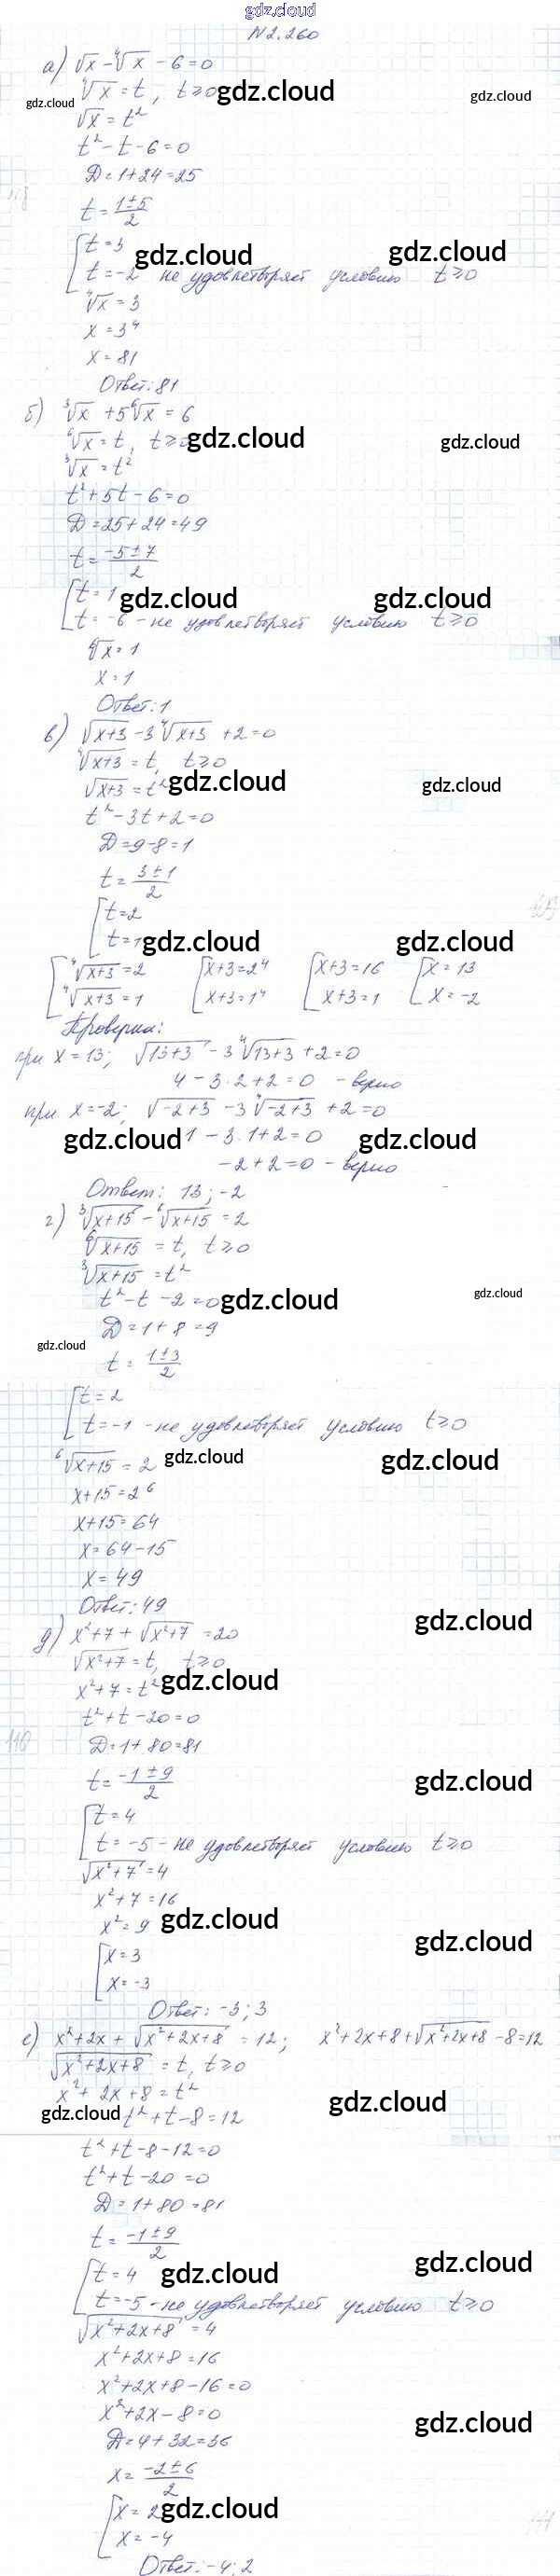 gdz.cloud
№2.260
а) √x - ⁴√x - 6 = 0
gdz.cloud
⁴√x = t, t ≥ 0 gdz.cloud gdz.cloud
√x = t²
t² - t - 6 = 0
D = 1 + 24 = 25
t = (1 ± 5)/2
[ t = 3 gdz.cloud gdz.cloud
t = -2 не удовлетворяет условию t ≥ 0
⁴√x = 3
x = 3⁴
x = 81
Ответ: 81
б) ³√x + 5⁶√x = 6
⁶√x = t, t ≥ 0 gdz.cloud gdz.cloud
³√x = t²
t² + 5t - 6 = 0
D = 25 + 24 = 49
t = (-5 ± 7)/2
[ t = 1 gdz.cloud gdz.cloud
t = -6 - не удовлетворяет условию t ≥ 0
⁶√x = 1
x = 1
Ответ: 1
в) √(x+3) - 3⁴√(x+3) + 2 = 0
⁴√(x+3) = t, t ≥ 0
√(x+3) = t² gdz.cloud gdz.cloud
t² - 3t + 2 = 0
D = 9 - 8 = 1
t = (3 ± 1)/2
[ t = 2
t = 1 gdz.cloud gdz.cloud
[ ⁴√(x+3) = 2 [ x+3 = 2⁴ [ x+3 = 16 [ x = 13
⁴√(x+3) = 1 x+3 = 1⁴ x+3 = 1 x = -2
Проверка:
при x = 13; √(13+3) - 3⁴√(13+3) + 2 = 0
4 - 3·2 + 2 = 0 - верно
при x = -2; √(-2+3) - 3⁴√(-2+3) + 2 = 0
gdz.cloud 1 - 3·1 + 2 = 0 gdz.cloud
-2 + 2 = 0 - верно
Ответ: 13; -2
г) ³√(x+15) - ⁶√(x+15) = 2
⁶√(x+15) = t, t ≥ 0
³√(x+15) = t²
t² - t - 2 = 0 gdz.cloud gdz.cloud
D = 1 + 8 = 9
gdz.cloud
t = (1 ± 3)/2
[ t = 2
t = -1 - не удовлетворяет условию t ≥ 0
⁶√(x+15) = 2 gdz.cloud gdz.cloud
x+15 = 2⁶
x+15 = 64
x = 64 - 15
x = 49
Ответ: 49
gdz.cloud
д) x² + 7 + √(x²+7) = 20
√(x²+7) = t, t ≥ 0
x² + 7 = t² gdz.cloud
t² + t - 20 = 0
D = 1 + 80 = 81
t = (-1 ± 9)/2 gdz.cloud
[ t = 4
t = -5 - не удовлетворяет условию t ≥ 0
√(x²+7) = 4
x² + 7 = 16
x² = 9 gdz.cloud gdz.cloud
[ x = 3
x = -3
Ответ: -3; 3
е) x² + 2x + √(x²+2x+8) = 12; x² + 2x + 8 + √(x²+2x+8) - 8 = 12
√(x²+2x+8) = t, t ≥ 0
x² + 2x + 8 = t² gdz.cloud
gdz.cloud t² + t - 8 = 12
t² + t - 8 - 12 = 0
t² + t - 20 = 0
D = 1 + 80 = 81
t = (-1 ± 9)/2
[ t = 4 gdz.cloud gdz.cloud
t = -5 - не удовлетворяет условию t ≥ 0
√(x²+2x+8) = 4
x² + 2x + 8 = 16
x² + 2x + 8 - 16 = 0
x² + 2x - 8 = 0 gdz.cloud
D = 4 + 32 = 36
x = (-2 ± 6)/2
[ x = 2 gdz.cloud gdz.cloud
x = -4
Ответ: -4; 2